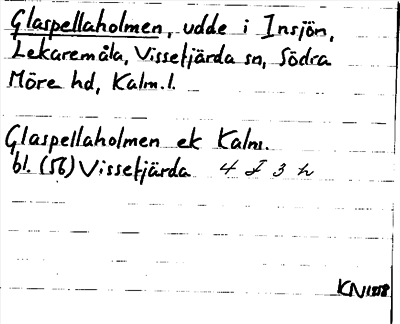 Glaspellaholmen, udde i Insjön,
Lekaremåla, Vissefjärda sn, Södra
Möre hd, Kalm.l.
Glaspellaholmen ek Kalm.
bl. (56) Vissefjärda 4 F 3 h